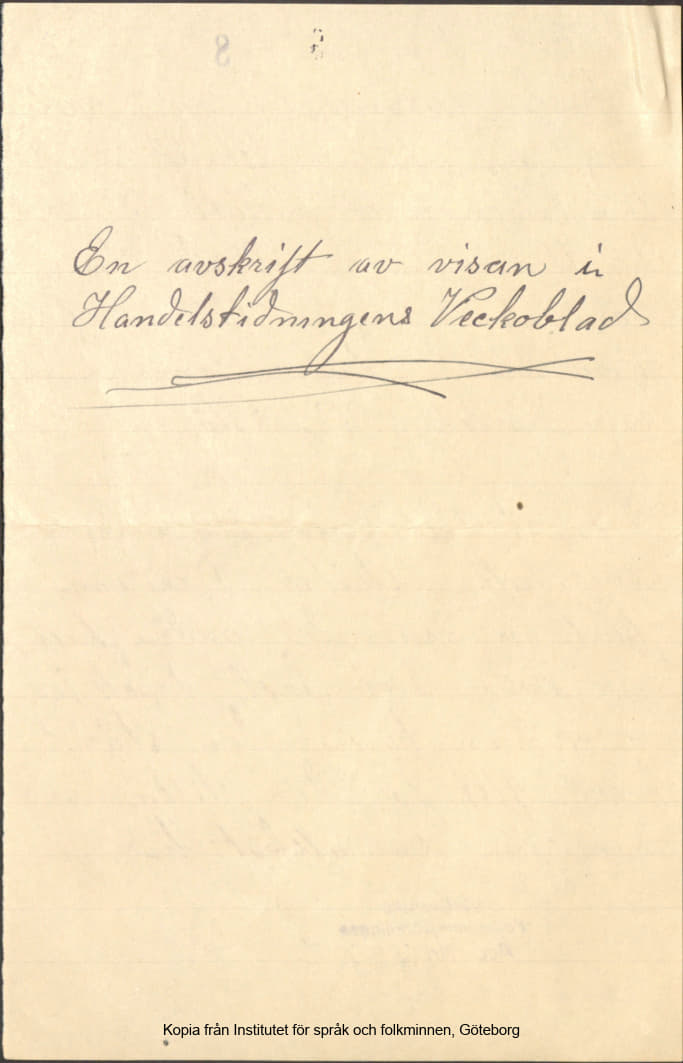 En avskrift av visan i
Handelstidningens Veckoblad
Kopia från Institutet för språk och folkminnen, Göteborg